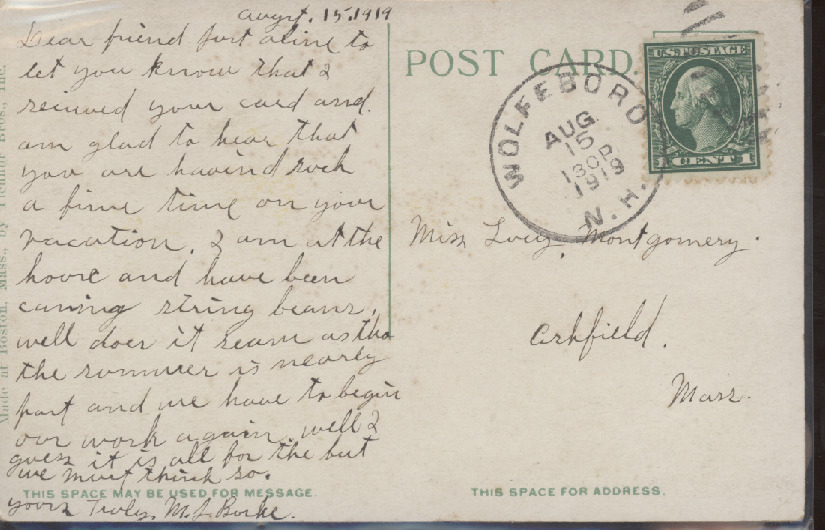 August. 15, 1919
Dear friend just a line to
let you know that I
recieved your card and.
am glad to hear that
you are havind such
a fine time on your
vacation. I am at the
house and have been
caning string beans.
well does it seam as tho
the summer is nearly
past and we have to begin
our work again. well I
guess it is all for the but
we must think so.
yours Truly. M. J. Burke.
THIS SPACE MAY BE USED FOR MESSAGE.
Made at Boston, Mass., by Tichnor Bros., Inc.
POST CARD
U.S. POSTAGE
1 CENT 1
WOLFEBORO
AUG
15
1919
N. H.
Miss Lucy Montgomery.
Ashfield.
Mass.
THIS SPACE FOR ADDRESS.